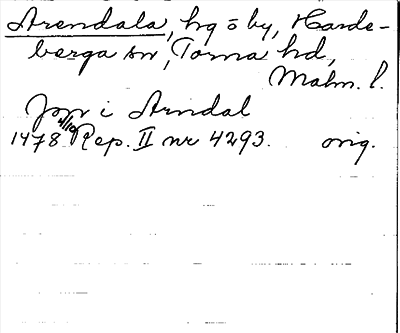 Arendala, hg o by, Harde-
berga sn, Torna hd,
Malm. l.
Jon i Arndal
1478 4/10 Rep. II nr 4293. orig.